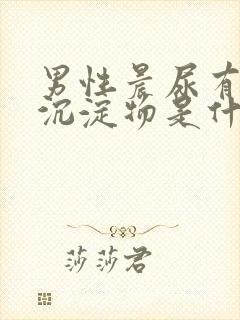 男性晨尿有
沉淀物是什
莎莎君